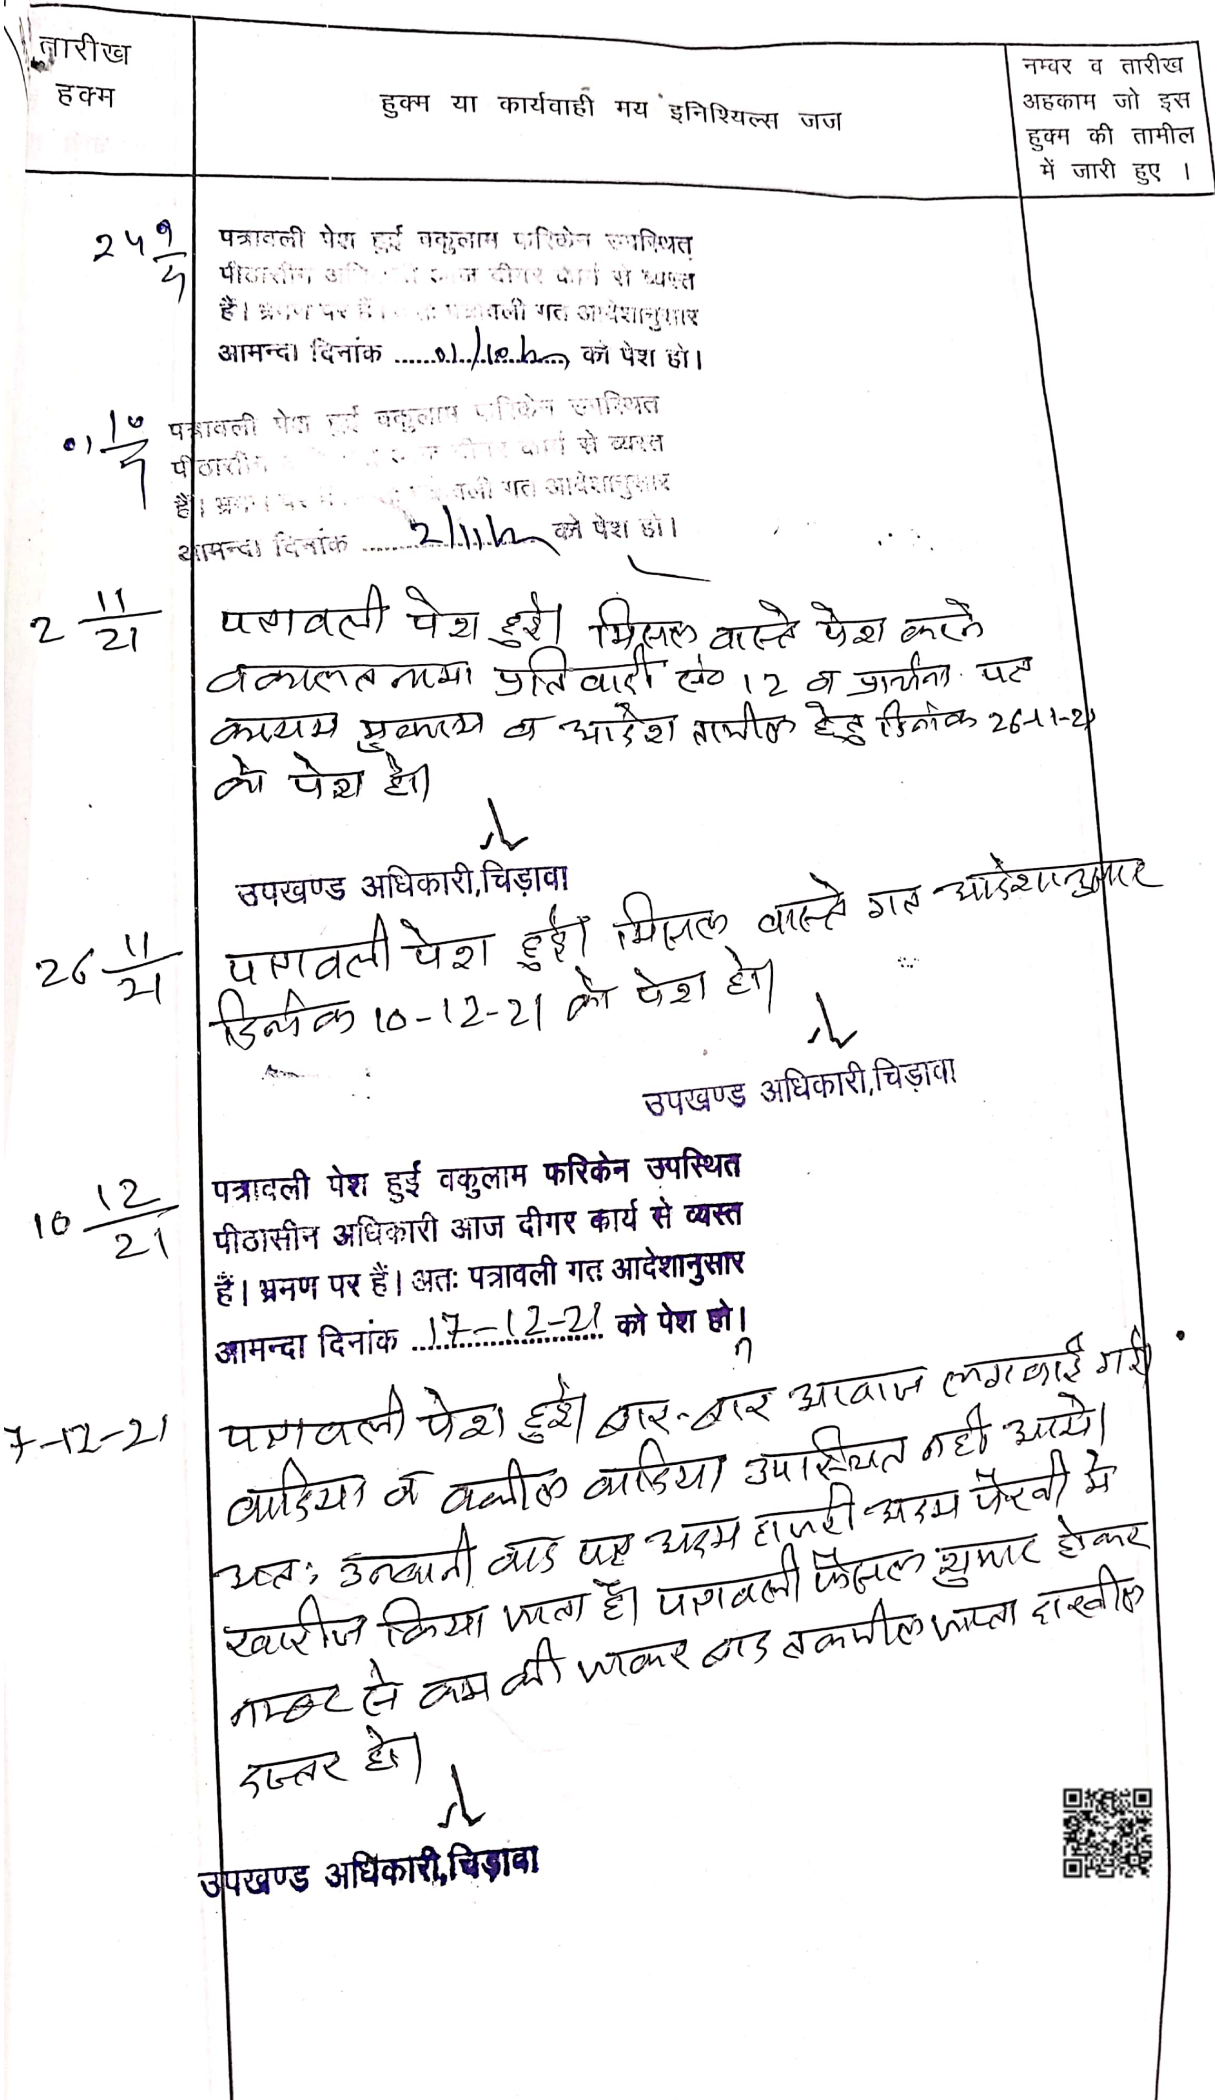 तारीख
हुक्म
हुक्म या कार्यवाही मय इनिशियल्स जज
नम्वर व तारीख
अहकाम जो इस
हुक्म की तामील
में जारी हुए ।
24 9
पत्रावली पेश हुई वकुलाम फरिकेन उपस्थित
पीठासीन दीगर कार्य से व्यस्त
हैं। भ्रमण पर हैं। पत्रावली गत आदेशानुसार
आमन्दा दिनांक 01/10/21 को पेश हो।
01 10
पत्रावली पेश हुई वकुलाम फरिकेन उपस्थित
पीठासीन कार्य से व्यस्त
हैं। भ्रमण पर गत आदेशानुसार
आमन्दा दिनांक 2/11/21 को पेश हो।
2 11/21
पत्रावली पेश हुई। मिसल वास्ते पेश करने
वकालतनामा प्रतिवादी सं० 12 व प्रार्थना पत्र
कायम मुकाम व आदेश तामील हेतु दिनांक 26-11-21
को पेश हो।
उपखण्ड अधिकारी,चिड़ावा
26 11/21
पत्रावली पेश हुई। मिसल वास्ते गत आदेशानुसार
दिनांक 10-12-21 को पेश हो।
उपखण्ड अधिकारी,चिड़ावा
10 12/21
पत्रावली पेश हुई वकुलाम फरिकेन उपस्थित
पीठासीन अधिकारी आज दीगर कार्य से व्यस्त
हैं। भ्रमण पर हैं। अतः पत्रावली गत आदेशानुसार
आमन्दा दिनांक 17-12-21 को पेश हो।
7-12-21
पत्रावली पेश हुई। बार-बार आवाज लगवाई गई
वादिया व वकील वादिया उपस्थित नही आये।
अतः उनवानी वाद पत्र अदम हाजरी अदम पैरवी मे
खारीज किया जाता है। पत्रावली फैसल शुमार होकर
नम्बर से कम की जाकर बाद तकमील जाप्ता दाखील
दफ्तर हो।
उपखण्ड अधिकारी,चिड़ावा